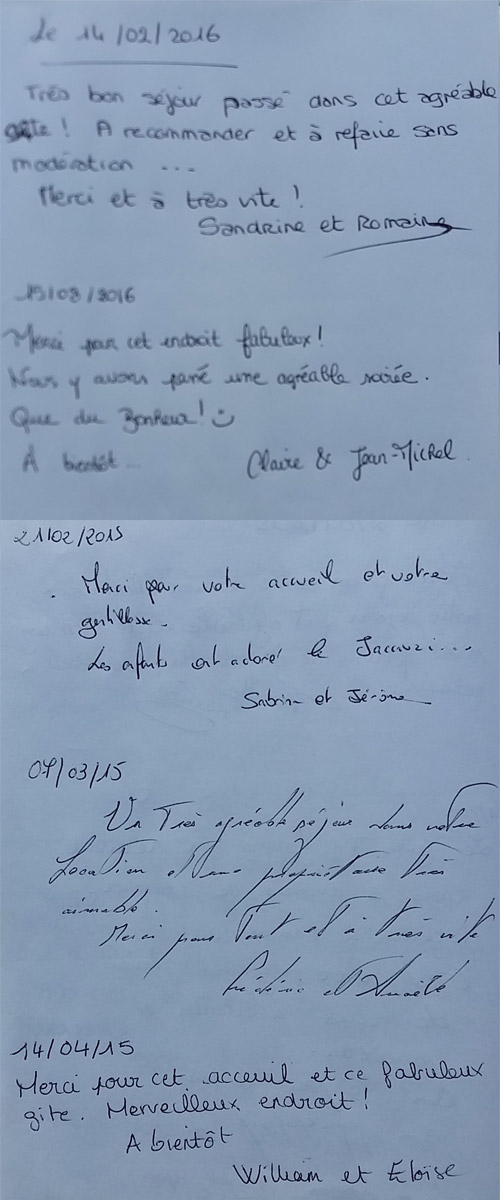 Le 14/02/2016
Très bon séjour passé dans cet agréable
gîte ! A recommander et à refaire sans
modération ...
Merci et à très vite !
Sandrine et Romain
15/03/2016
Merci pour cet endroit fabuleux !
Nous y avons passé une agréable soirée.
Que du Bonheur ! ☺
À bientôt ...
Claire & Jean-Michel
21/02/2015
Merci pour votre accueil et votre
gentillesse.
Les enfants ont adoré le Jaccuzi ...
Sabrina et Jérôme
07/03/15
Un Très agréable séjour dans votre
Location et une propriétaire Très
aimable.
Merci pour Tout et à Très vite
Frédéric et
14/04/15
Merci pour cet acceuil et ce fabuleux
gite. Merveilleux endroit !
A bientôt
William et Eloïse